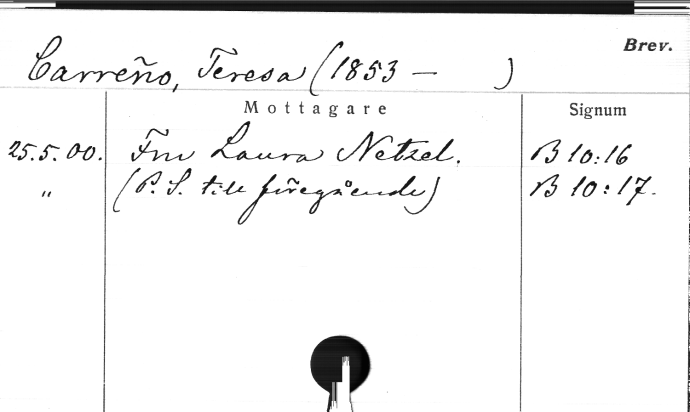 Brev.
Carreño, Teresa (1853 - )
Mottagare
Signum
25.5.00. Fru Laura Netzel. B 10:16
" (P.S. till föregående) B 10:17.